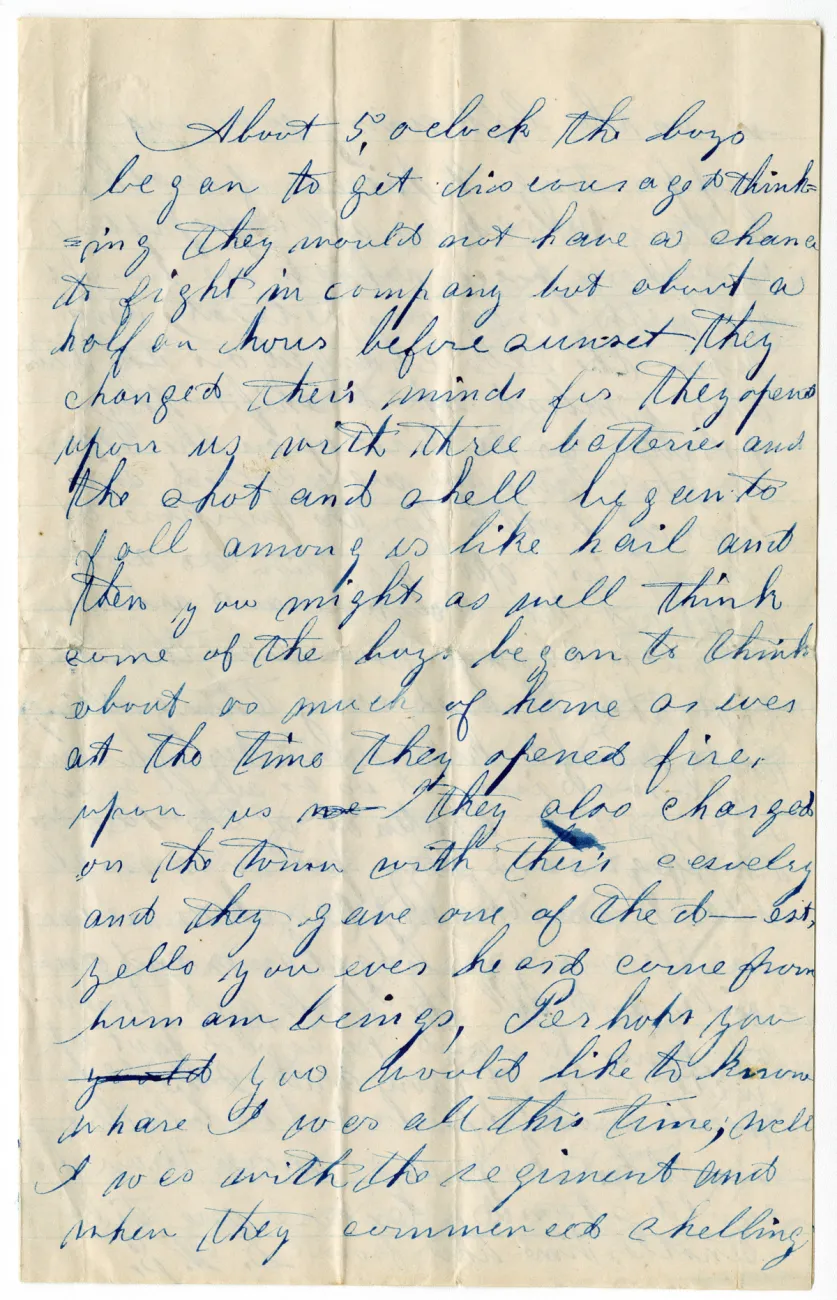 About 5, oclock the boys
began to get discouraged think=
=ing they would not have a chanc
to fight in company but about a
half an hour before sunset they
changed their minds for they opend
upon us with three batteries and
the shot and shell began to
fall among us like hail and
then you might as well think
some of the boys began to think
about as much of home as ever
at the time they opened fire,
upon us they also charged
on the town with their cavelry
and they gave one of the d—est,
yells you ever heard come from
human beings, Perhaps you
you would like to know
whare I was all this time; well
I was with the regiment and
when they commenced shelling